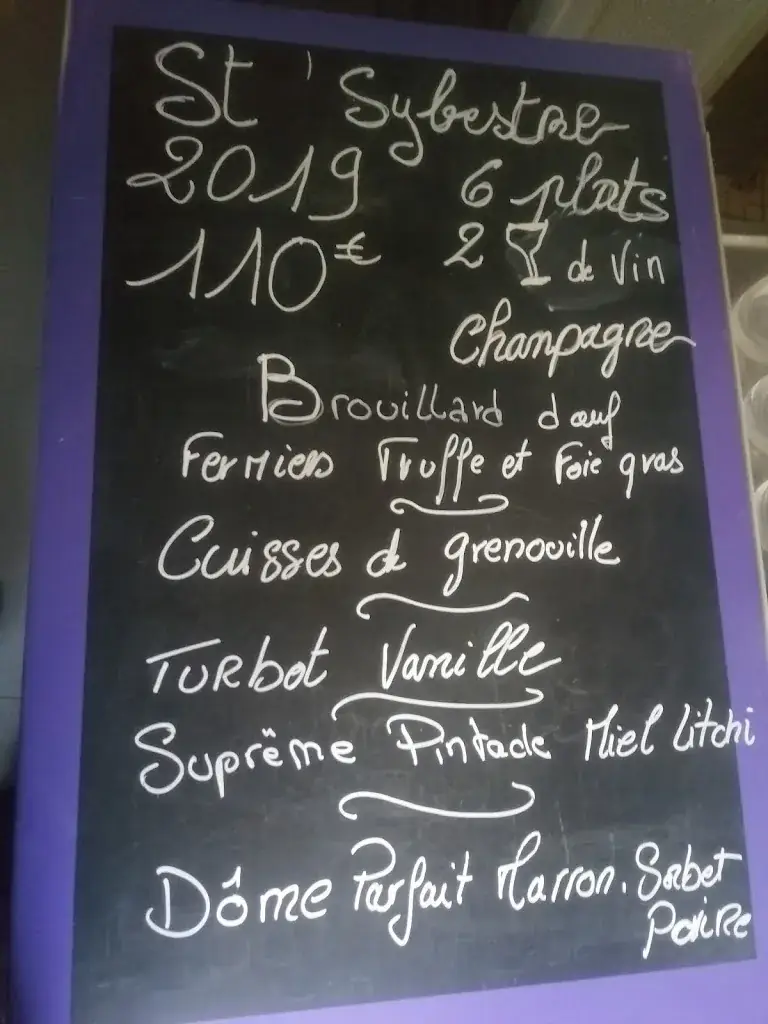 St' Sylbestre
2019 6 plats
110€ 2 de Vin
Champagne
Brouillard d'œuf
Fermiers Truffe et Foie gras
Cuisses de grenouille
Turbot Vanille
Suprême Pintade Miel Litchi
Dôme Parfait Marron. Sorbet
Poire